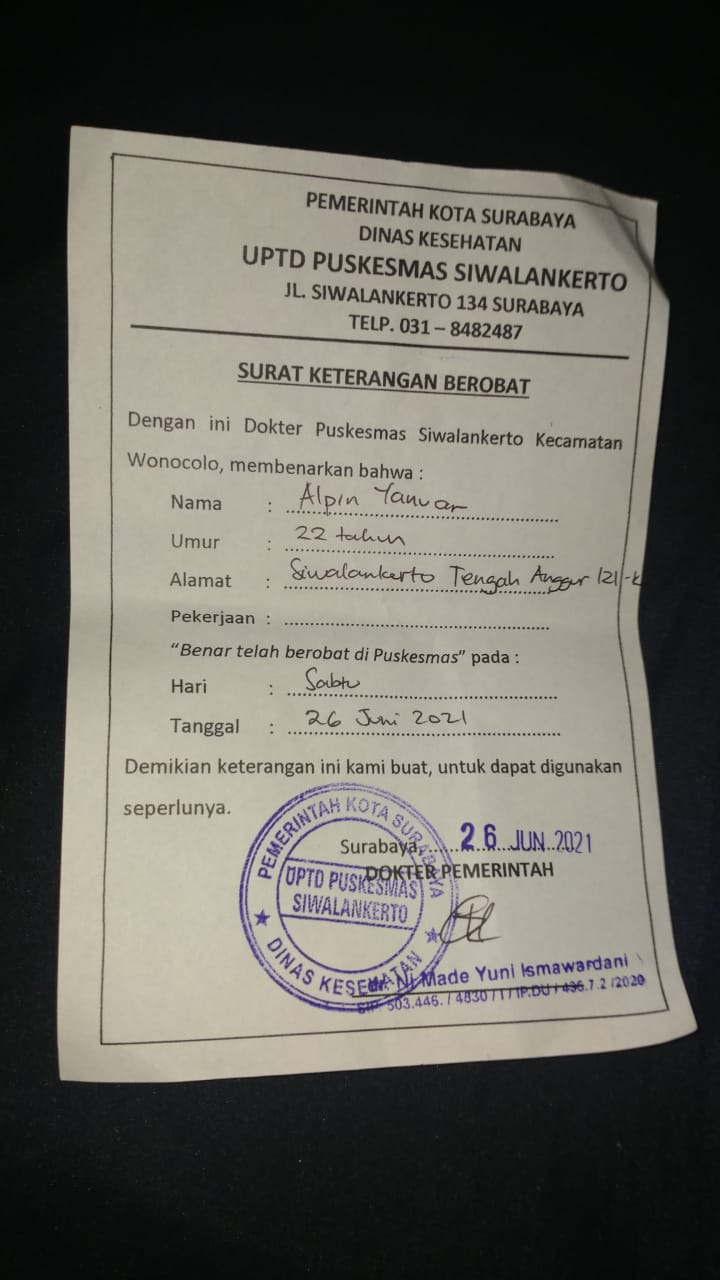 PEMERINTAH KOTA SURABAYA
DINAS KESEHATAN
UPTD PUSKESMAS SIWALANKERTO
JL. SIWALANKERTO 134 SURABAYA
TELP. 031 – 8482487
SURAT KETERANGAN BEROBAT
Dengan ini Dokter Puskesmas Siwalankerto Kecamatan
Wonocolo, membenarkan bahwa :
Nama : Alpin Yanuar
Umur : 22 tahun
Alamat : Siwalankerto Tengah Anggur 121-K
Pekerjaan :
“Benar telah berobat di Puskesmas” pada :
Hari : Sabtu
Tanggal : 26 Juni 2021
Demikian keterangan ini kami buat, untuk dapat digunakan
seperlunya.
Surabaya, 26 JUN 2021
DOKTER PEMERINTAH
PEMERINTAH KOTA SURABAYA
UPTD PUSKESMAS
SIWALANKERTO
DINAS KESEHATAN
dr. Ni Made Yuni Ismawardani
SIP. 503.446. / 4830 / 1 / 1P.DU / 436.7.2 /2020